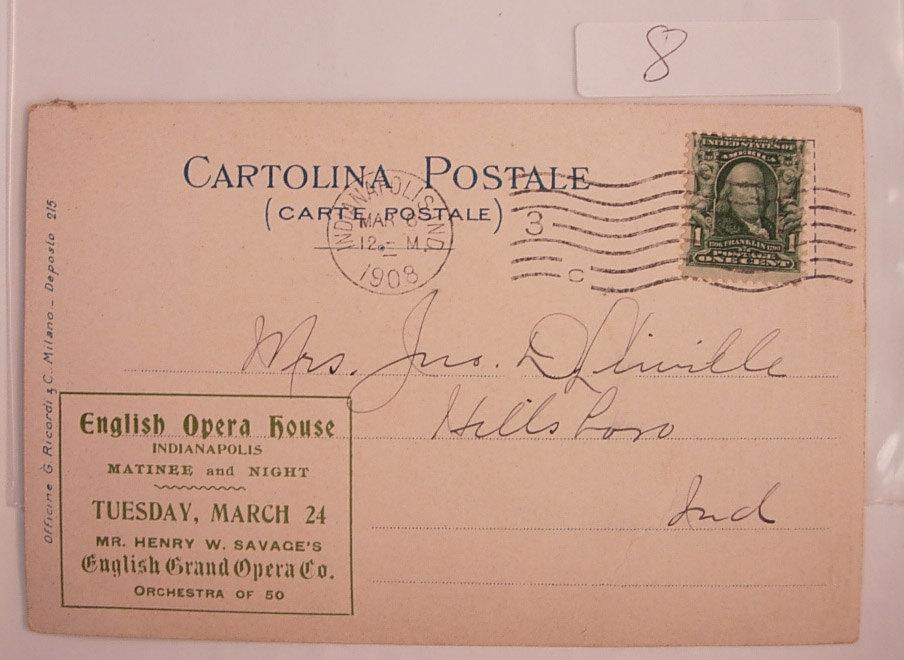 8
CARTOLINA POSTALE
(CARTE POSTALE)
INDIANAPOLIS, IND.
MAR
12 - M
1908
3
C
UNITED STATES OF
AMERICA
1 FRANKLIN 1
POSTAGE
ONE CENT
Mrs. Jno. D
Hillsboro
Ind
Officine G. Ricordi & C. Milano - Deposto 215
English Opera House
INDIANAPOLIS
MATINEE and NIGHT
TUESDAY, MARCH 24
MR. HENRY W. SAVAGE'S
English Grand Opera Co.
ORCHESTRA OF 50